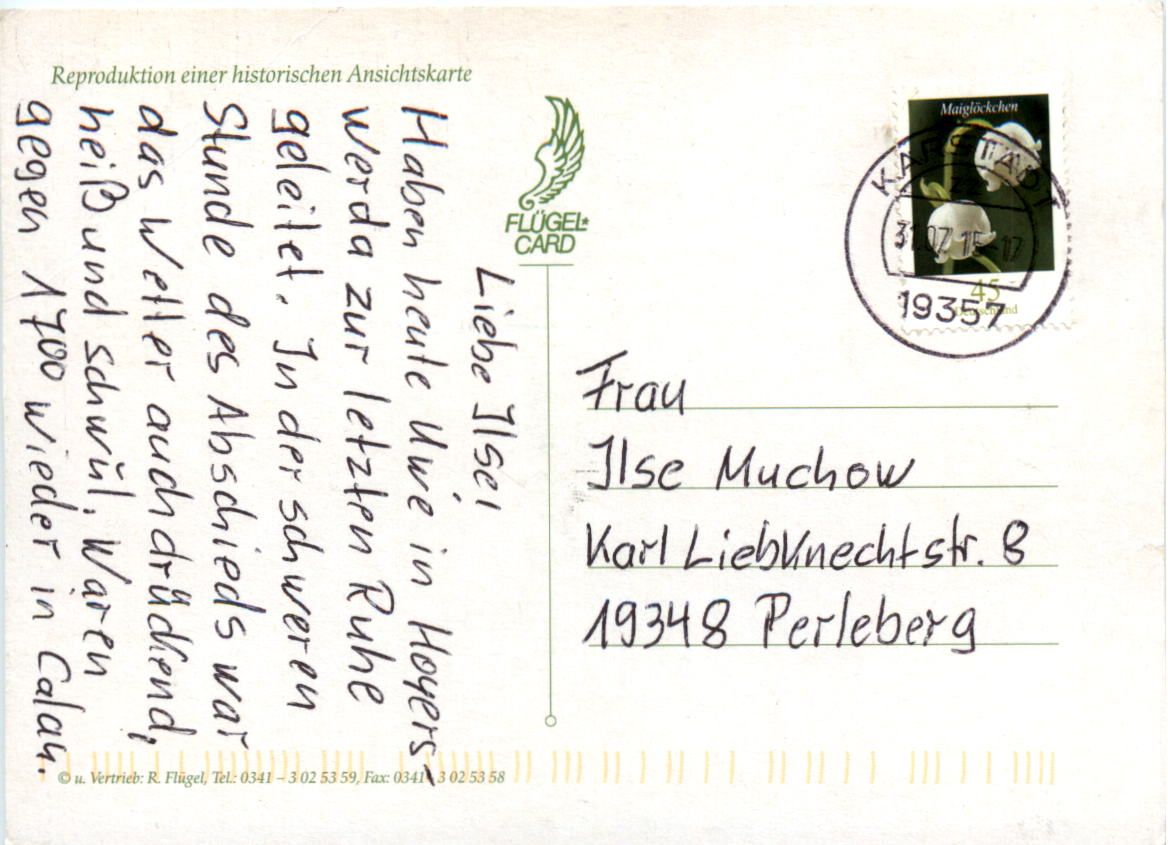 Reproduktion einer historischen Ansichtskarte
Liebe Ilse!
Haben heute Uwe in Hoyers-
werda zur letzten Ruhe
geleitet. In der schweren
Stunde des Abschieds war
das Wetter auch drückend,
heiß und schwül. Waren
gegen 1700 wieder in Calau.
FLÜGEL*
CARD
Maiglöckchen
45
Deutschland
KARSTÄDT
31.07.15-17
19357
Frau
Ilse Muchow
Karl Liebknechtstr. 8
19348 Perleberg
© u. Vertrieb: R. Flügel, Tel.: 0341 – 3 02 53 59, Fax: 0341 - 3 02 53 58